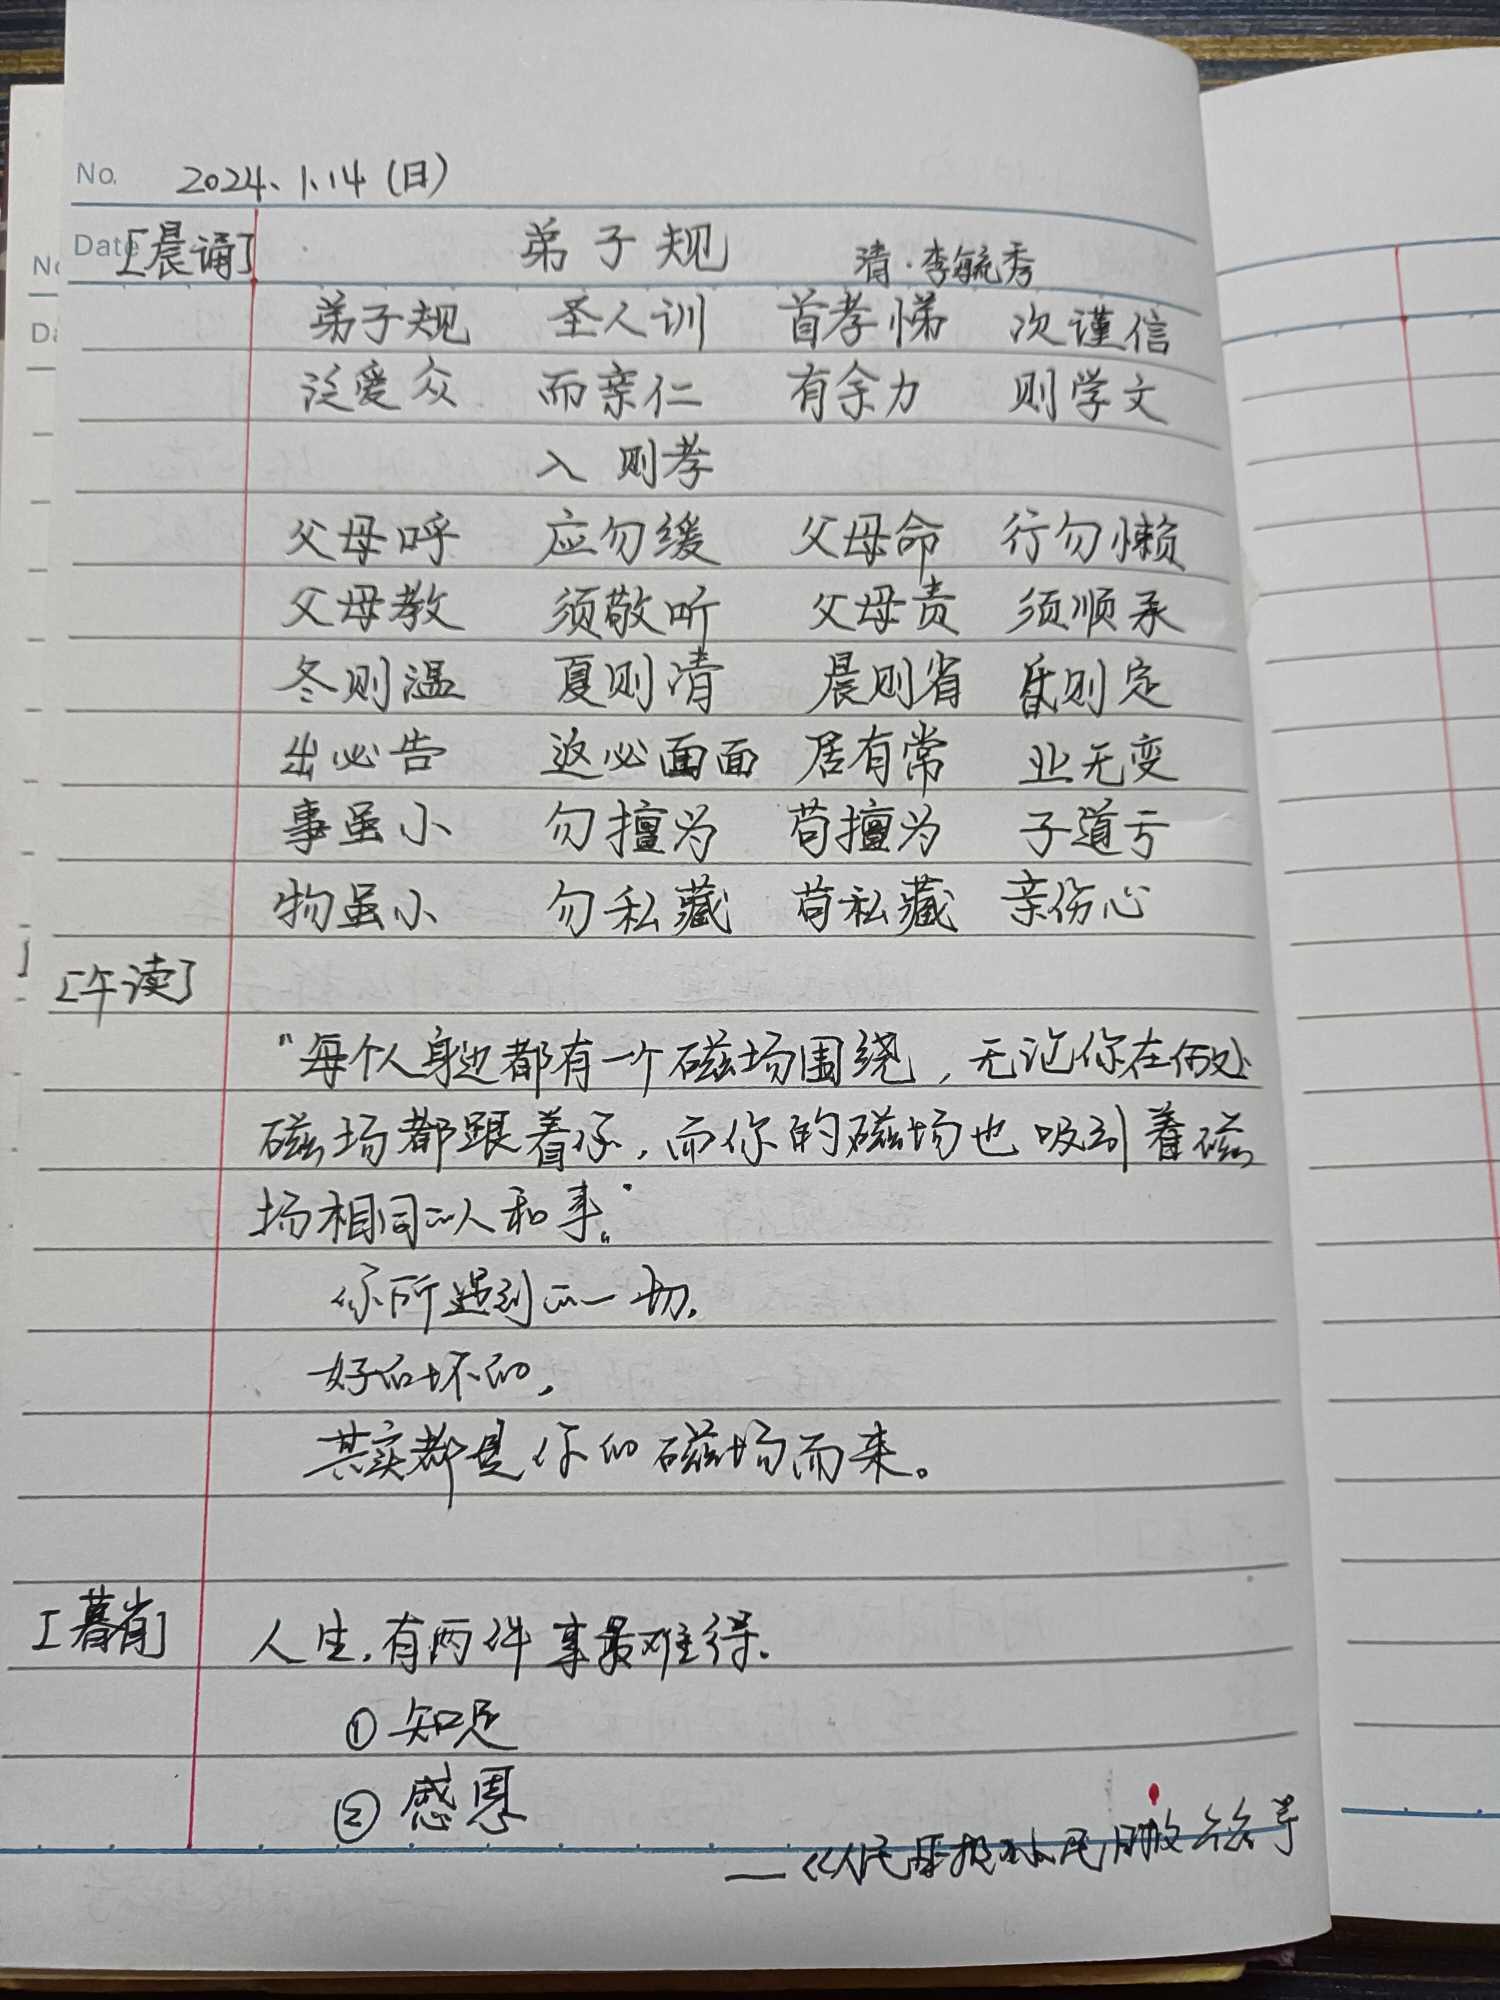 No. 2024.1.14(日)
Date [晨诵] 弟子规 清·李毓秀
弟子规 圣人训 首孝悌 次谨信
泛爱众 而亲仁 有余力 则学文
入则孝
父母呼 应勿缓 父母命 行勿懒
父母教 须敬听 父母责 须顺承
冬则温 夏则清 晨则省 昏则定
出必告 返必面面 居有常 业无变
事虽小 勿擅为 苟擅为 子道亏
物虽小 勿私藏 苟私藏 亲伤心
[午读]
"每个人身边都有一个磁场围绕,无论你在何处
磁场都跟着你,而你的磁场也吸引着磁
场相同的人和事。"
你所遇到的一切,
好的坏的,
其实都是你的磁场而来。
[暮省] 人生,有两件事最难得。
①知足
②感恩
——《人民